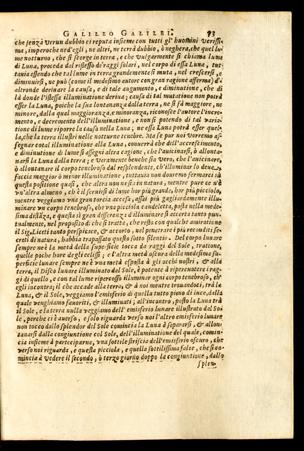 GALILEO GALILEI. 93
che senza verun dubbio ci reputa insieme con tutti gl' huomini
me, improche ned'egli, ne altri, ne terrà dubbio, ò negherà, che quel lu-
me notturno, che si scorge in terra, e che vulgarmente si chiama lume
di Luna, proceda dal riflesso di raggi solari, nel corpo di essa Luna, tut-
tavia essendo che tal lume in terra grandemente si muta, nel crescersi, e
diminuirsi, ne può (come il medesimo autore con gran ragione afferma) d'-
altronde derivar la causa, e di tale augumento, e diminutione, che di
là donde l'istessa illuminatione deriva; causa di tal mutatione non potrà
esser la Luna, poiche la sua lontananza dalla terra, ne si fà maggiore, ne
minore, dalla qual maggioranza, e minoranza, riconosce l'autore l'incre-
mento, e decremento dell'illuminatione, e non si potendo di tal varia-
tione di lume riporre la causa nella Luna, ne essa Luna potrà esser quel-
la, che la terra illustri nelle notturne tenebre. Ma se pur noi vorremo as-
segnar cotal illuminatione alla Luna, converrà che dell'accrescimento,
e diminutione di lume si assegni altra cagione, che l'avicinarsi, ò allonta-
narsi la Luna dalla terra; e veramente benche sia vero, che l'avicinare,
ò allontanare il corpo tenebroso dal resplendente, ch'illuminar lo deve,
faccia maggior ò minor illuminatione, tuttavia non doveremo fermarci sù
questa positione quasi, che altra non ne sia in natura, mentre pure ce n'è
un'altra almeno, &
mentre veggiamo una gran torcia accesa, assai più gagliardamente illumi-
nare un corpo tenebroso, che una piccola candeletta, posta nella mede-
sima distanza, e questa si gran differenza d'illuminare si accerta tanto pun-
tualmente, nel proposito di che si tratta, che resta con qualche ammiratione
il Sig. Liceti tanto perspicace, & accorto, nel penetrare i più reconditi se-
creti di natura, habbia trapassato questo sotto silentio. Del corpo lunare
sempre ne è la metà della superficie tocca da raggi del Sole, trattone
quelle poche hore degl'eclissi; e l'altra metà oscura della medesima su-
perficie lunare sempre ne è una metà esposta à gli occhi nostri, & alla
terra, il Disco lunare illuminato dal Sole, è potente à ripercuotere i rag-
gi di quello, e con tal lume riperosso illuminar ogni corpo tenebroso, ch'
egli incontri; il che accade alla terra, & à noi mentre trovandoci, trà la
Luna, & il Sole, veggiamo l'emisferio di quella tutto pieno di luce, della
quale venghiamo feriti, & illuminati; all'incontro, posta la Luna trà
il Sole, e la terra nulla veggiamo dell' emisferio lunare illustrato dal So-
le, perche ci è averso, e solo riguarda verso noi l'altro emisferio lunare
non tocco dallo splendor del Sole comincia la Luna à separarsi, & allon-
tanarsi dalla congiuntione col Sole, dell'illuminatione del quale, comin-
cia insieme à participarne, una sottile striscia dell'emisferio oscuro, che
verso noi riguarda, e questa picciola, e quella sottilissima falce, che si co-
mincia à vedere il secondo, ò terzo giorno doppo la congiuntione, dallo
splen-